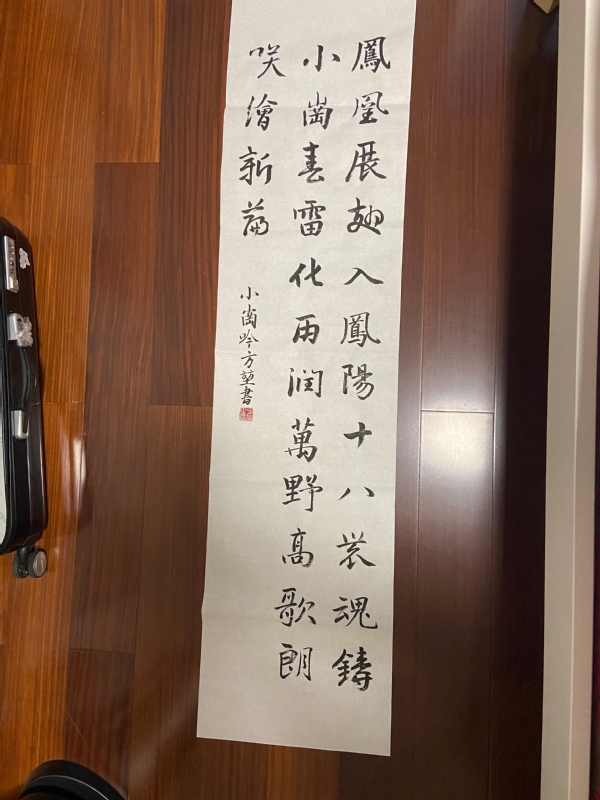 鳳凰展翅入鳳陽十八农魂鑄
小崗春雷化雨润萬野高歌朗
咲繪新篇
小崗吟方堃書